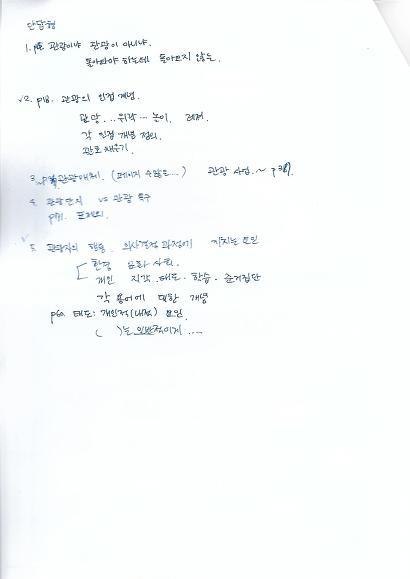 단답형
1. 관광이냐 관광이 아니냐.
돌아와야 하는데 돌아오지 않는
v2. p18. 관광의 인접 개념.
관망... 위락... 놀이. 레저.
각 인접 개념 정의.
괄호 채우기
3. 관광매체. (페이지 수 많은...) 관광 사업.~
4. 관광단지 vs 관광 특구
포인트.
5. 관광자의 행동. 의사결정 과정에 미치는 요인
환경 문화 사회.
개인 지각. 태도. 학습. 준거집단
각 용어에 대한 개념
p60. 태도: 개인적(내적) 요인.
( )는 일반적이게 ....